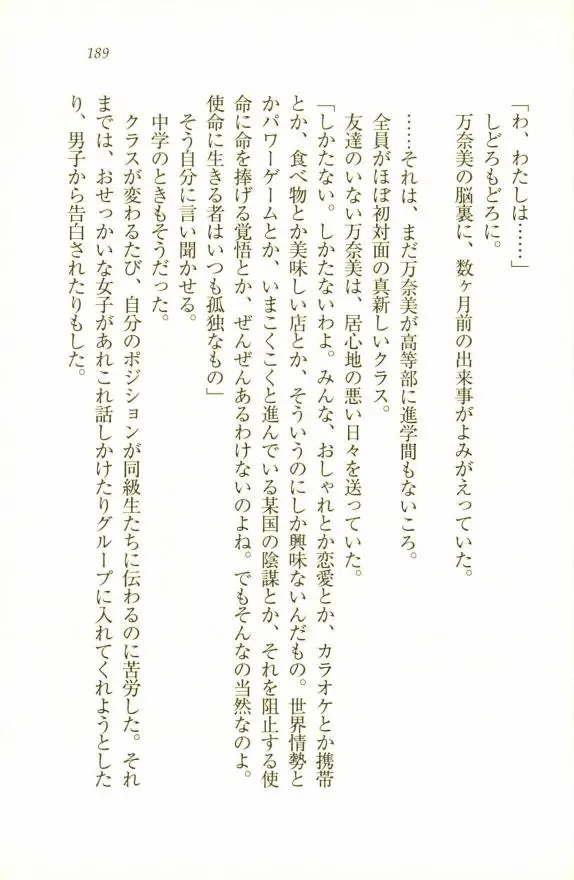 189
「わ、わたしは……」
しどろもどろに。
万奈美の脳裏に、数ヶ月前の出来事がよみがえっていた。
……それは、まだ万奈美が高等部に進学間もないころ。
全員がほぼ初対面の真新しいクラス。
友達のいない万奈美は、居心地の悪い日々を送っていた。
「しかたない。しかたないわよ。みんな、おしゃれとか恋愛とか、カラオケとか携帯
とか、食べ物とか美味しい店とか、そういうのにしか興味ないんだもの。世界情勢と
かパワーゲームとか、いまこくこくと進んでいる某国の陰謀とか、それを阻止する使
命に命を捧げる覚悟とか、ぜんぜんあるわけないのよね。でもそんなの当然なのよ。
使命に生きる者はいつも孤独なもの」
そう自分に言い聞かせる。
中学のときもそうだった。
クラスが変わるたび、自分のポジションが同級生たちに伝わるのに苦労した。それ
までは、おせっかいな女子があれこれ話しかけたりグループに入れてくれようとした
り、男子から告白されたりもした。